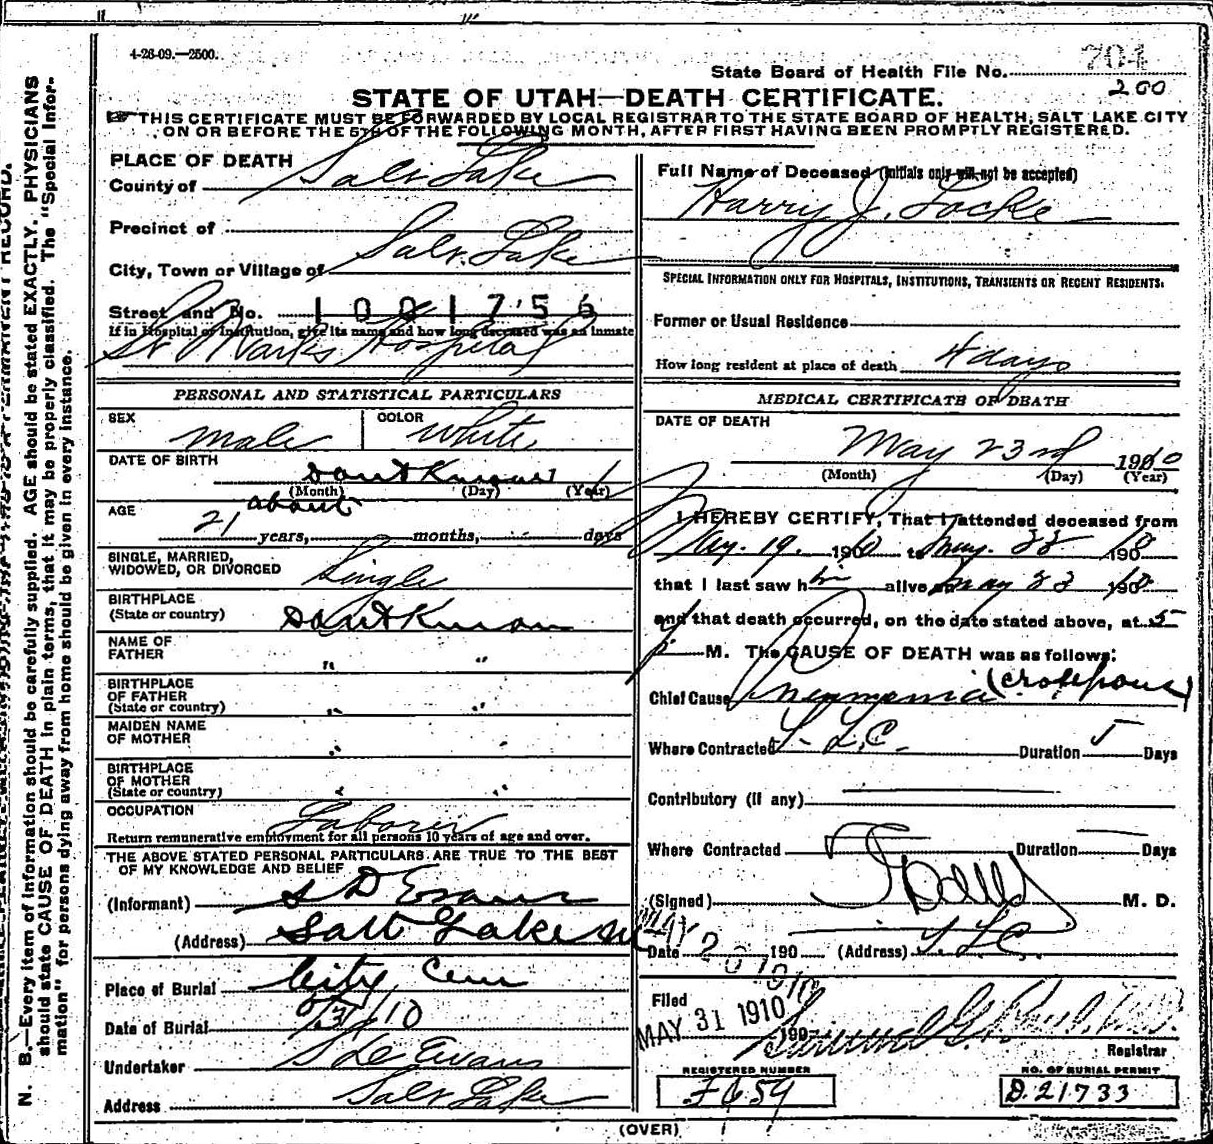 4-26-09.—2500.
State Board of Health File No. 704
200
STATE OF UTAH—DEATH CERTIFICATE.
THIS CERTIFICATE MUST BE FORWARDED BY LOCAL REGISTRAR TO THE STATE BOARD OF HEALTH, SALT LAKE CITY
ON OR BEFORE THE 5TH OF THE FOLLOWING MONTH, AFTER FIRST HAVING BEEN PROMPTLY REGISTERED.
PLACE OF DEATH
County of Salt Lake
Precinct of
City, Town or Village of Salt Lake
Street and No. 1001756
If in Hospital or Institution, give its name and how long deceased was an inmate
St Marks Hospital
PERSONAL AND STATISTICAL PARTICULARS
SEX male COLOR White
DATE OF BIRTH dont Know
(Month) (Day) (Year)
AGE about
21 years, months, days
SINGLE, MARRIED,
WIDOWED, OR DIVORCED Single
BIRTHPLACE
(State or country) Dont Know
NAME OF
FATHER " "
BIRTHPLACE
OF FATHER
(State or country) " "
MAIDEN NAME
OF MOTHER " "
BIRTHPLACE
OF MOTHER
(State or country) " "
OCCUPATION Laborer
Return remunerative employment for all persons 10 years of age and over.
THE ABOVE STATED PERSONAL PARTICULARS ARE TRUE TO THE BEST
OF MY KNOWLEDGE AND BELIEF
(Informant) S D Evans
(Address) Salt Lake
Place of Burial City Cem
Date of Burial 5/31/10
Undertaker S D Evans
Address Salt Lake
Full Name of Deceased (Initials only will not be accepted)
Harry J. Locke
SPECIAL INFORMATION ONLY FOR HOSPITALS, INSTITUTIONS, TRANSIENTS OR RECENT RESIDENTS.
Former or Usual Residence
How long resident at place of death 4 days
MEDICAL CERTIFICATE OF DEATH
DATE OF DEATH
May 23rd 1910
(Month) (Day) (Year)
I HEREBY CERTIFY, That I attended deceased from
May. 19. 1910 to May. 23 1910
that I last saw him alive on May 23 1910
and that death occurred, on the date stated above, at 5
P. M. The CAUSE OF DEATH was as follows:
Chief Cause Pneumonia (croupous)
Where Contracted S. L.C. Duration 5 Days
Contributory (if any)
Where Contracted Duration Days
(Signed) M. D.
Date MAY 1910 190 (Address) S. L.C.
Filed
MAY 31 1910 190
Samuel G. Paul
Registrar
REGISTERED NUMBER
F 659
NO. OF BURIAL PERMIT
D.21733
(OVER)
N. B.—Every item of information should be carefully supplied. AGE should be stated EXACTLY. PHYSICIANS
should state CAUSE OF DEATH in plain terms, that it may be properly classified. The "Special Infor-
mation" for persons dying away from home should be given in every instance.